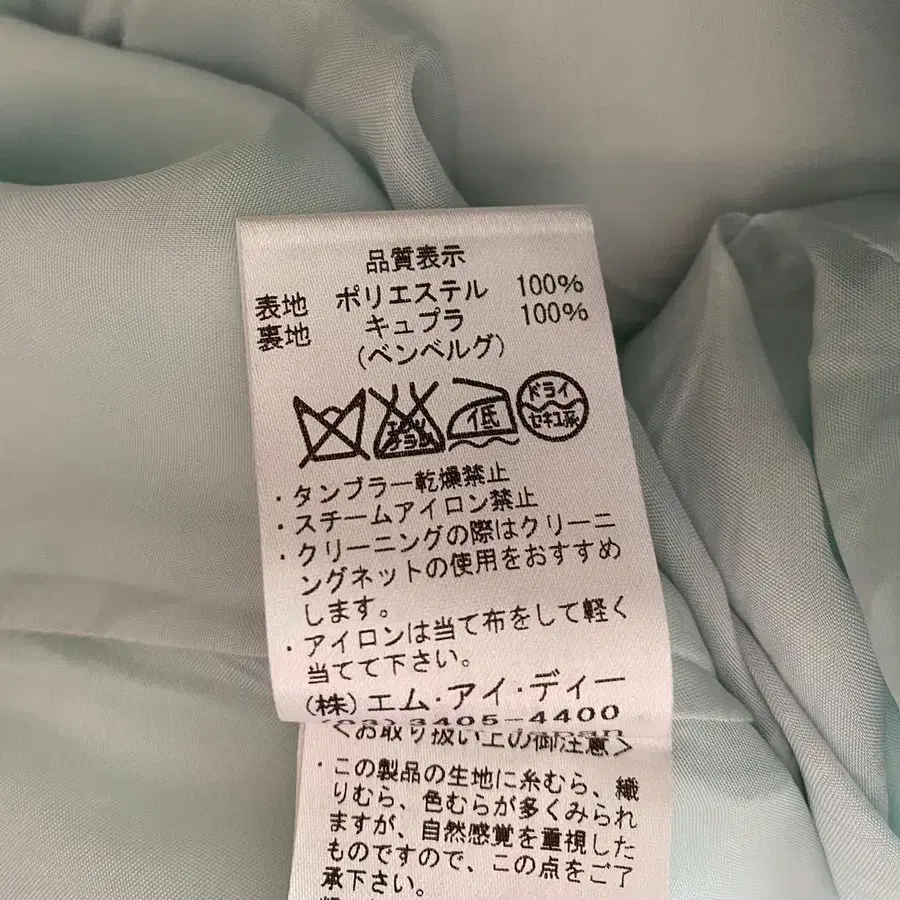 品質表示
表地 ポリエステル 100%
裏地 キュプラ 100%
(ベンベルグ)
エンソ
サラシ
低
ドライ
セキユ系
・タンブラー乾燥禁止
・スチームアイロン禁止
・クリーニングの際はクリーニ
ングネットの使用をおすすめ
します。
・アイロンは当て布をして軽く
当てて下さい。
(株)エム・アイ・ディー
(03)3405-4400
<お取り扱い上の御注意>
・この製品の生地に糸むら、織
りむら、色むらが多くみられ
ますが、自然感覚を重視した
ものですので、この点をご了
承下さい。